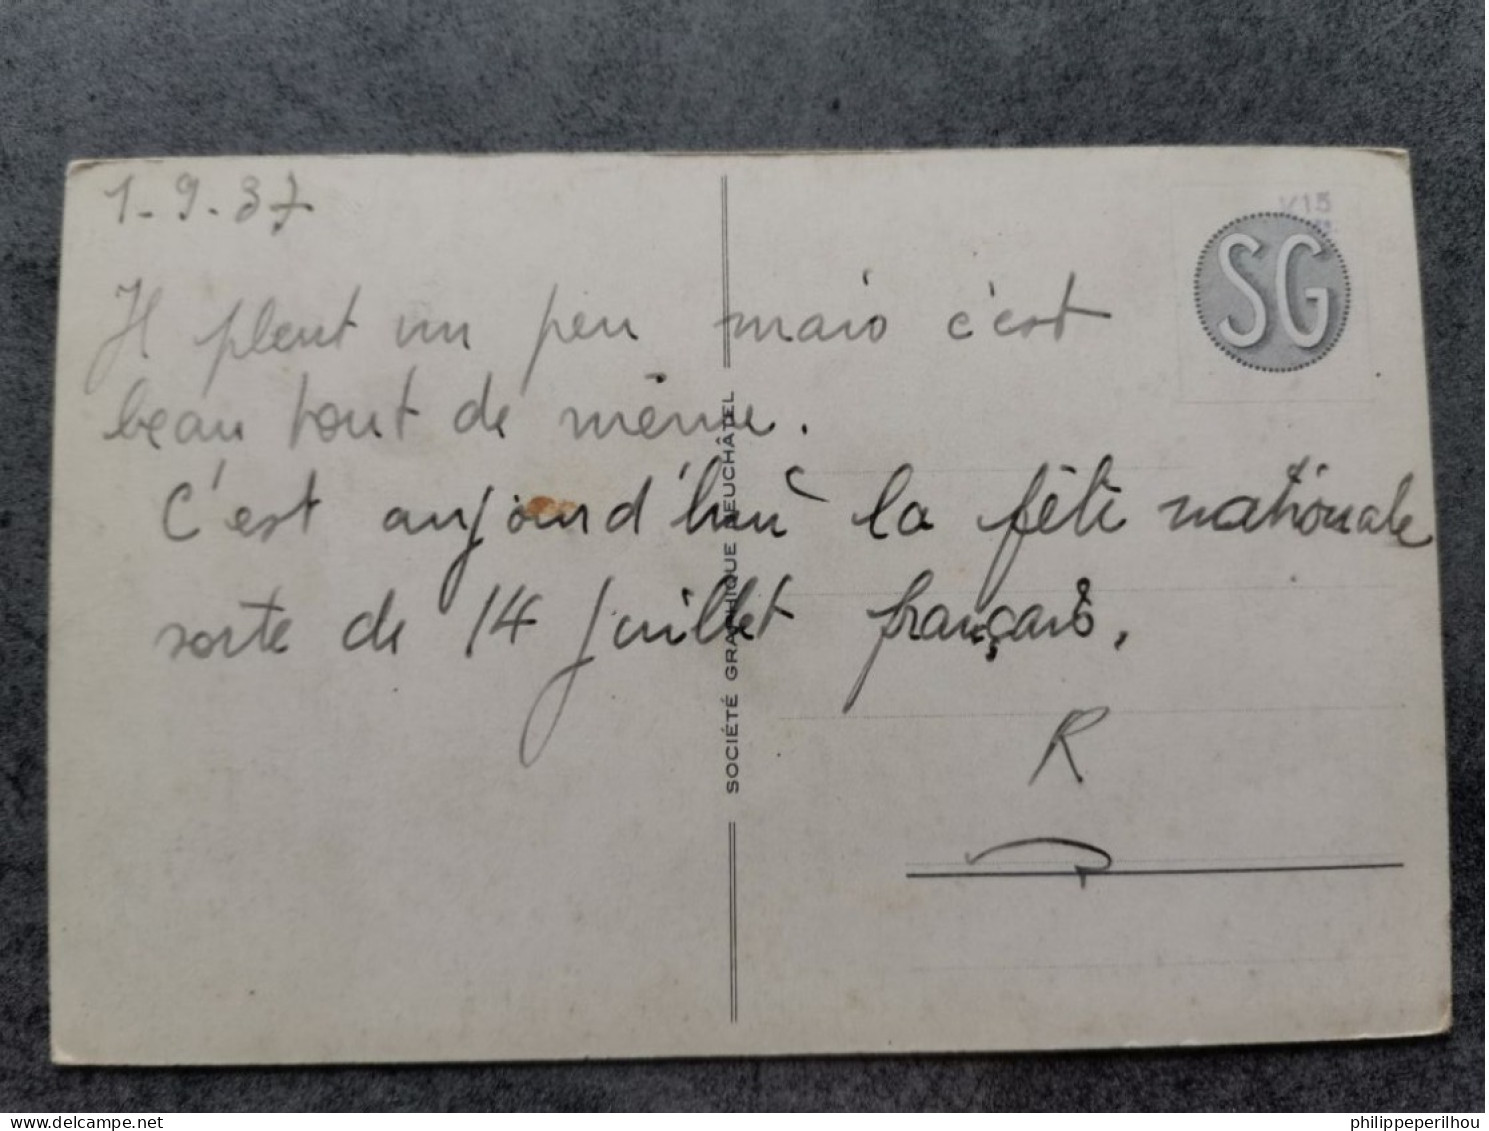 1-9-37
Il pleut un peu mais c'est
beau tout de même.
C'est aujourd'hui la fête nationale
sorte de 14 juillet français.
R
SOCIÉTÉ GRAPHIQUE NEUCHÂTEL
V15
SG
philippeperilhou